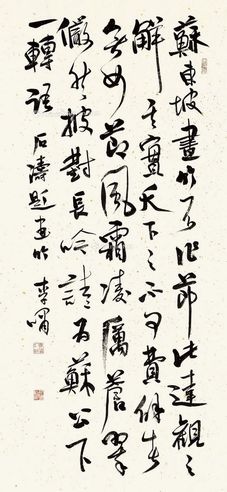 蘇東坡畫竹不作節此達觀之
解其實天下之不可費者
無如節風霜凌厲蒼翠
儼然披對長吟請為蘇公下
一轉語 石濤題畫竹 李嘯